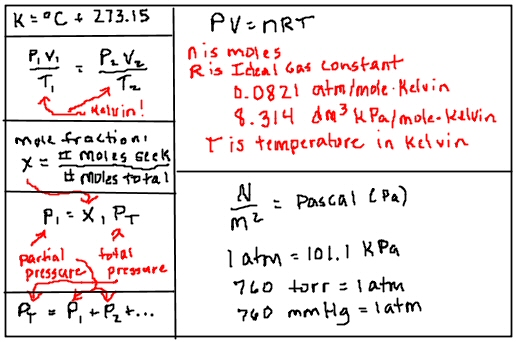 K = °C + 273.15
P₁V₁/T₁ = P₂V₂/T₂
Kelvin!
mole fraction:
X = # moles seek / # moles total
P₁ = X₁ P_T
partial pressure
total pressure
P_T = P₁ + P₂ + ...
PV = nRT
n is moles
R is Ideal Gas constant
0.0821 atm/mole·Kelvin
8.314 dm³ kPa/mole-Kelvin
T is temperature in Kelvin
N/m² = Pascal (Pa)
1 atm = 101.1 KPa
760 torr = 1 atm
760 mmHg = 1 atm